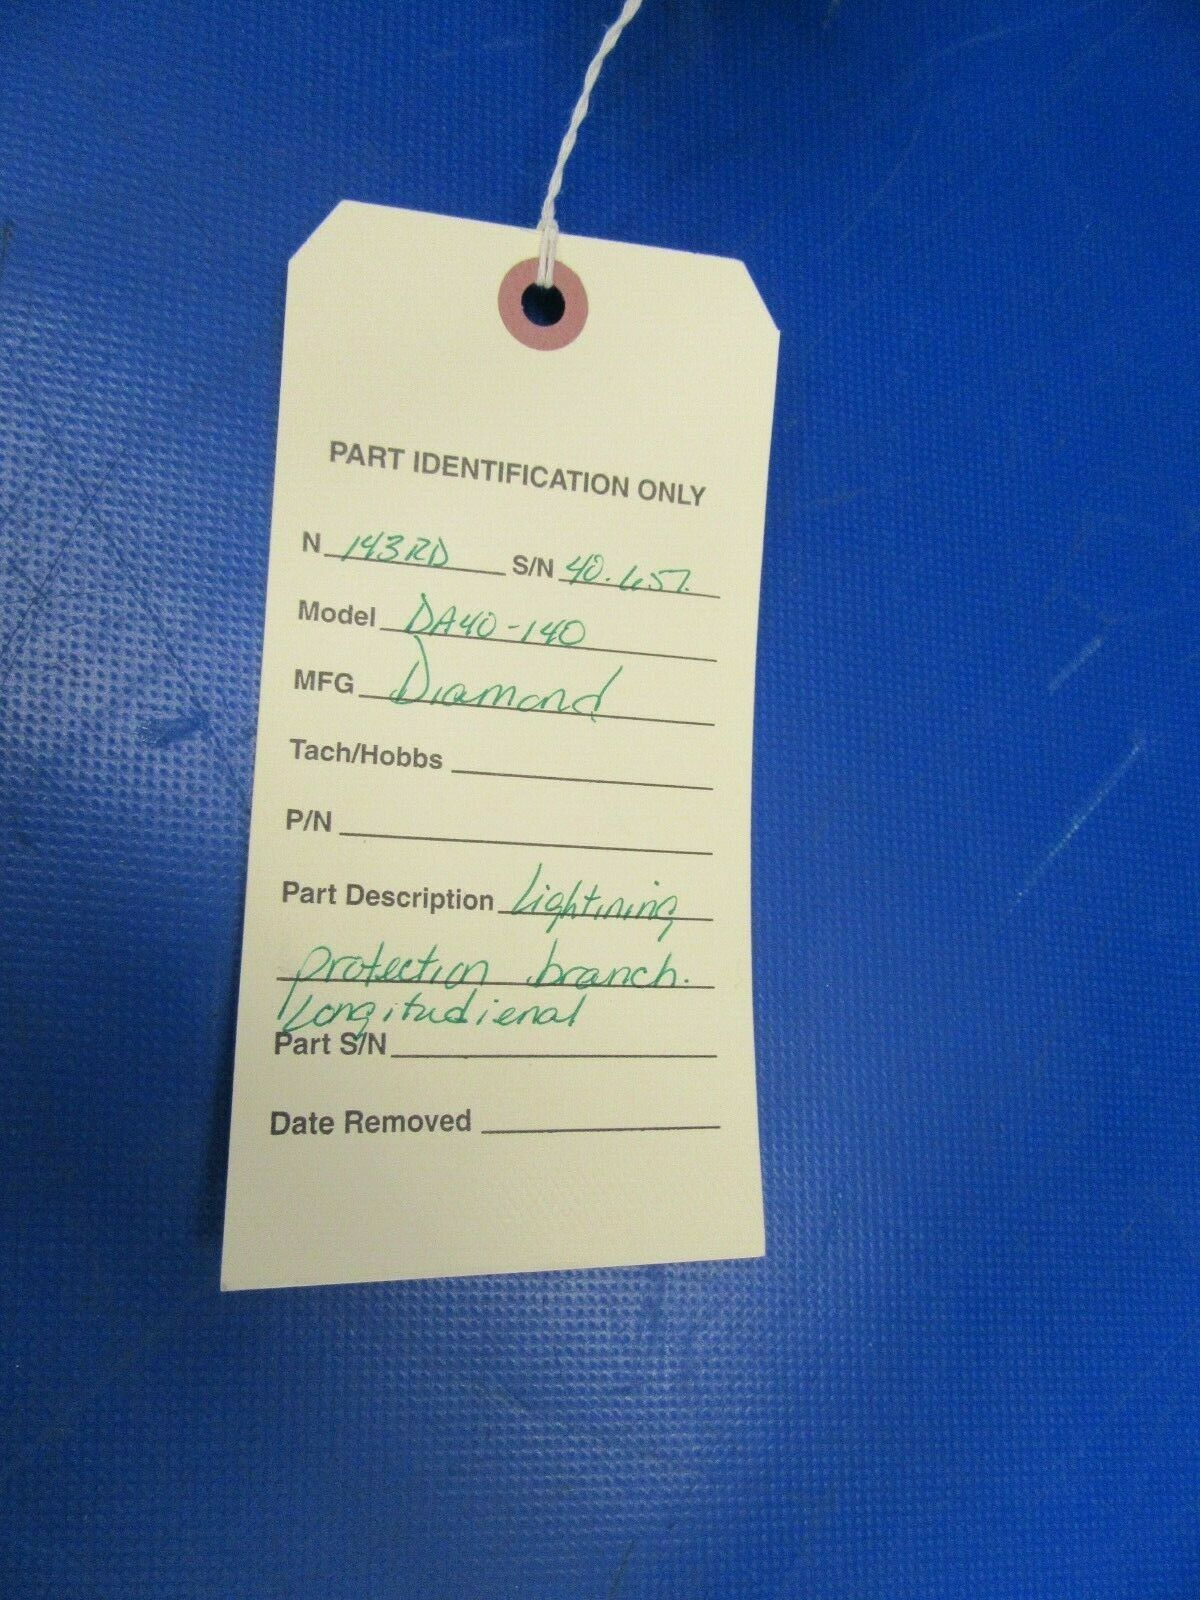 PART IDENTIFICATION ONLY
N 143RD S/N 40.657.
Model DA40-140
MFG Diamond
Tach/Hobbs
P/N
Part Description Lightining
protection branch.
Longitudienal
Part S/N
Date Removed